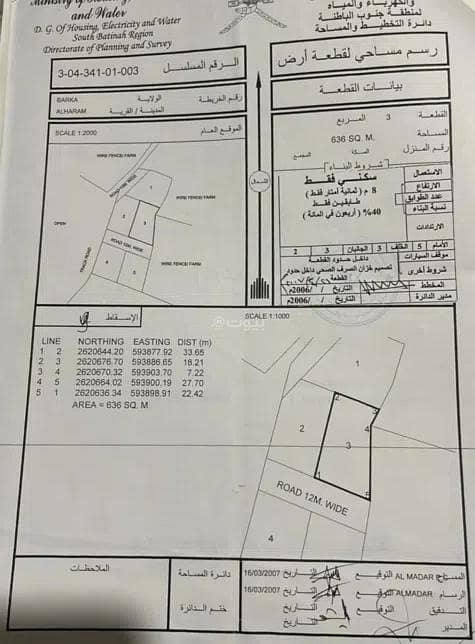 and Water
D. G. Of Housing, Electricity and Water
South Batinah Region
Directorate of Planning and Survey
والكهرباء والمياه
لمنطقة جنوب الباطنة
دائرة التخطيط والمساحة
3-04-341-01-003
الرقم المسلسل
رسم مساحي لقطعة أرض
BARKA
الولاية
رقم الخريطة
ALHARAM
المدينة / القرية
بيانات القطعة
SCALE 1:2000
الموقع العام
القطعة 3 المربع
المساحة 636 SQ. M.
رقم المنزل السكة المجمع
شروط البناء
الاستعمال سكني فقط
الارتفاع 8 م (ثمانية أمتار فقط)
عدد الطوابق طابقين فقط
نسبة البناء 40% (أربعون في المائة)
الارتدادات
الأمام 5 الخلف 3 الجانبان 3 2
موقف السيارات داخل حدود القطعة
شروط أخرى تصميم خزان الصرف الصحي داخل حدود القطعة
المخطط التاريخ / /2006م
مدير الدائرة التاريخ / /2006م
WIRE FENCE/ FARM
ROAD 10M. WIDE
OPEN
1
2
3
ROAD 12M. WIDE
4
TRACK ROAD
WIRE FENCE/ FARM
WIRE FENCE/ FARM
الشمال
الإسقاط
SCALE 1:1000
LINE NORTHING EASTING DIST (m)
1 2 2620644.20 593877.92 33.65
2 3 2620676.70 593886.65 18.21
3 4 2620670.32 593903.70 7.22
4 5 2620664.02 593900.19 27.70
5 1 2620636.34 593898.91 22.42
AREA = 636 SQ. M.
بيوت
1
2
3
4
5
1
2
3
ROAD 12M. WIDE
4
الملاحظات
دائرة المساحة
ختم الدائرة
المساح AL MADAR التوقيع التاريخ 16/03/2007
الرسام ALMADAR التوقيع التاريخ 16/03/2007
التدقيق التوقيع التاريخ
المدير التوقيع التاريخ